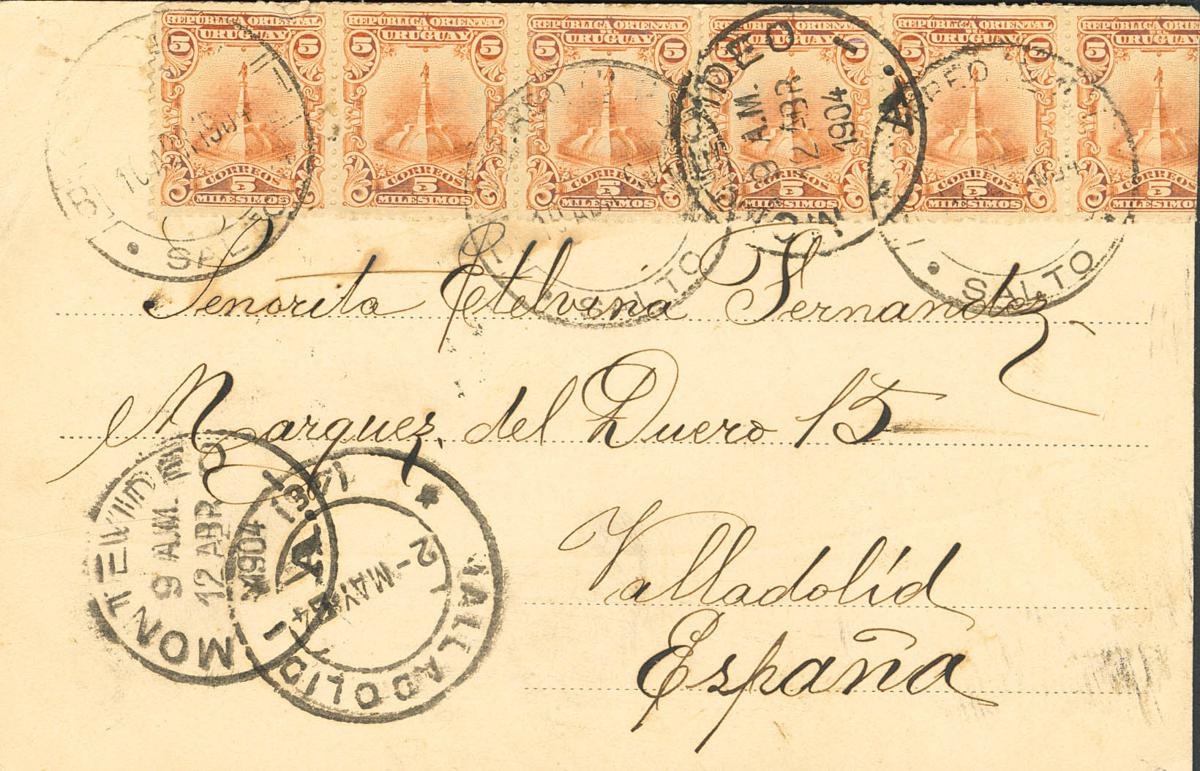 REPÚBLICA ORIENTAL REPÚBLICA ORIENTAL REPÚBLICA ORIENTAL REPÚBLICA ORIENTAL REPÚBLICA ORIENTAL REPÚBLICA ORIENTAL
5 URUGUAY 5 5 URUGUAY 5 5 URUGUAY 5 5 URUGUAY 5 5 URUGUAY 5 5 URUGUAY
CORREOS CORREOS CORREOS CORREOS CORREOS CORREOS
5 5 5 5 5 5
MILESIMOS MILESIMOS MILESIMOS MILESIMOS MILESIMOS MILESIMOS
SALTO
10 ABR
SALTO
MONTEVIDEO
9 A.M.
12 ABR
1904
A.
SALTO
Señorita Etelvina Fernandez
Marquez del Duero 15
Valladolid
España
MONTEVIDEO
9 A.M.
12 ABR
1904
A.
VALLADOLID
2-MAY 04